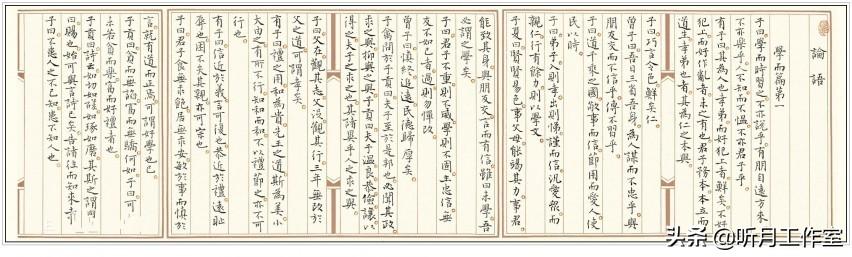 論語
學而篇第一
子曰學而時習之不亦說乎有朋自遠方來
不亦樂乎人不知而不慍不亦君子乎
有子曰其為人也孝弟而好犯上者鮮矣不好
犯上而好作亂者未之有也君子務本本立而
道生孝弟也者其為仁之本與
子曰巧言令色鮮矣仁
曾子曰吾日三省吾身為人謀而不忠乎與
朋友交而不信乎傳不習乎
子曰道千乘之國敬事而信節用而愛人使
民以時
子曰弟子入則孝出則悌謹而信汎愛眾而
親仁行有餘力則以學文
子夏曰賢賢易色事父母能竭其力事君
能致其身與朋友交言而有信雖曰未學吾
必謂之學矣
子曰君子不重則不威學則不固主忠信無
友不如己者過則勿憚改
曾子曰慎終追遠民德歸厚矣
子禽問於子貢曰夫子至於是邦也必聞其政
求之與抑與之與子貢曰夫子溫良恭儉讓以
得之夫子之求之也其諸異乎人之求之與
子曰父在觀其志父沒觀其行三年無改於
父之道可謂孝矣
有子曰禮之用和為貴先王之道斯為美小
大由之有所不行知和而和不以禮節之亦不可
行也
有子曰信近於義言可復也恭近於禮遠恥
辱也因不失其親亦可宗也
子曰君子食無求飽居無求安敏於事而慎於
言就有道而正焉可謂好學也已
子貢曰貧而無諂富而無驕何如子曰可也
未若貧而樂富而好禮者也
子貢曰詩云如切如磋如琢如磨其斯之謂與
曰賜也始可與言詩已矣告諸往而知來者
子曰不患人之不己知患不知人也
头条 @听月工作室